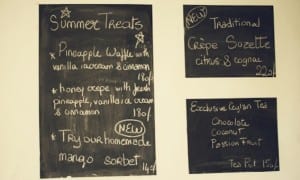 Summer Treats
* Pineapple Waffle with
vanilla icecream & cinnamon
180/-
* honey crepe with fresh
pineapple, vanilla ice cream
& cinnamon 180/-
NEW
* Try our homemade
mango sorbet
NEW
Traditional
Crêpe Suzette
citrus & cognac
Exclusive Ceylon Tea
Chocolate
Coconut
Passion Fruit
Tea Pot